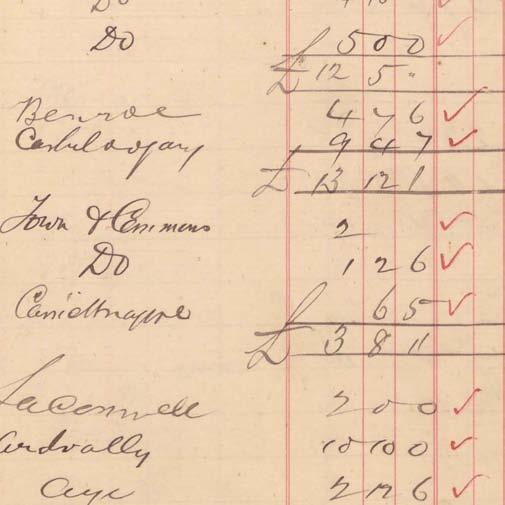 Do
Do 5 0 0 ✓
£ 12 5 "
Benroe 4 7 6 ✓
9 4 7 ✓
£ 13 12 1
Town & Commons 2 ✓
Do 1 2 6 ✓
6 5 ✓
£ 3 8 11
Laconnell 2 0 0 ✓
Ardvally 10 10 0 ✓
2 12 6 ✓